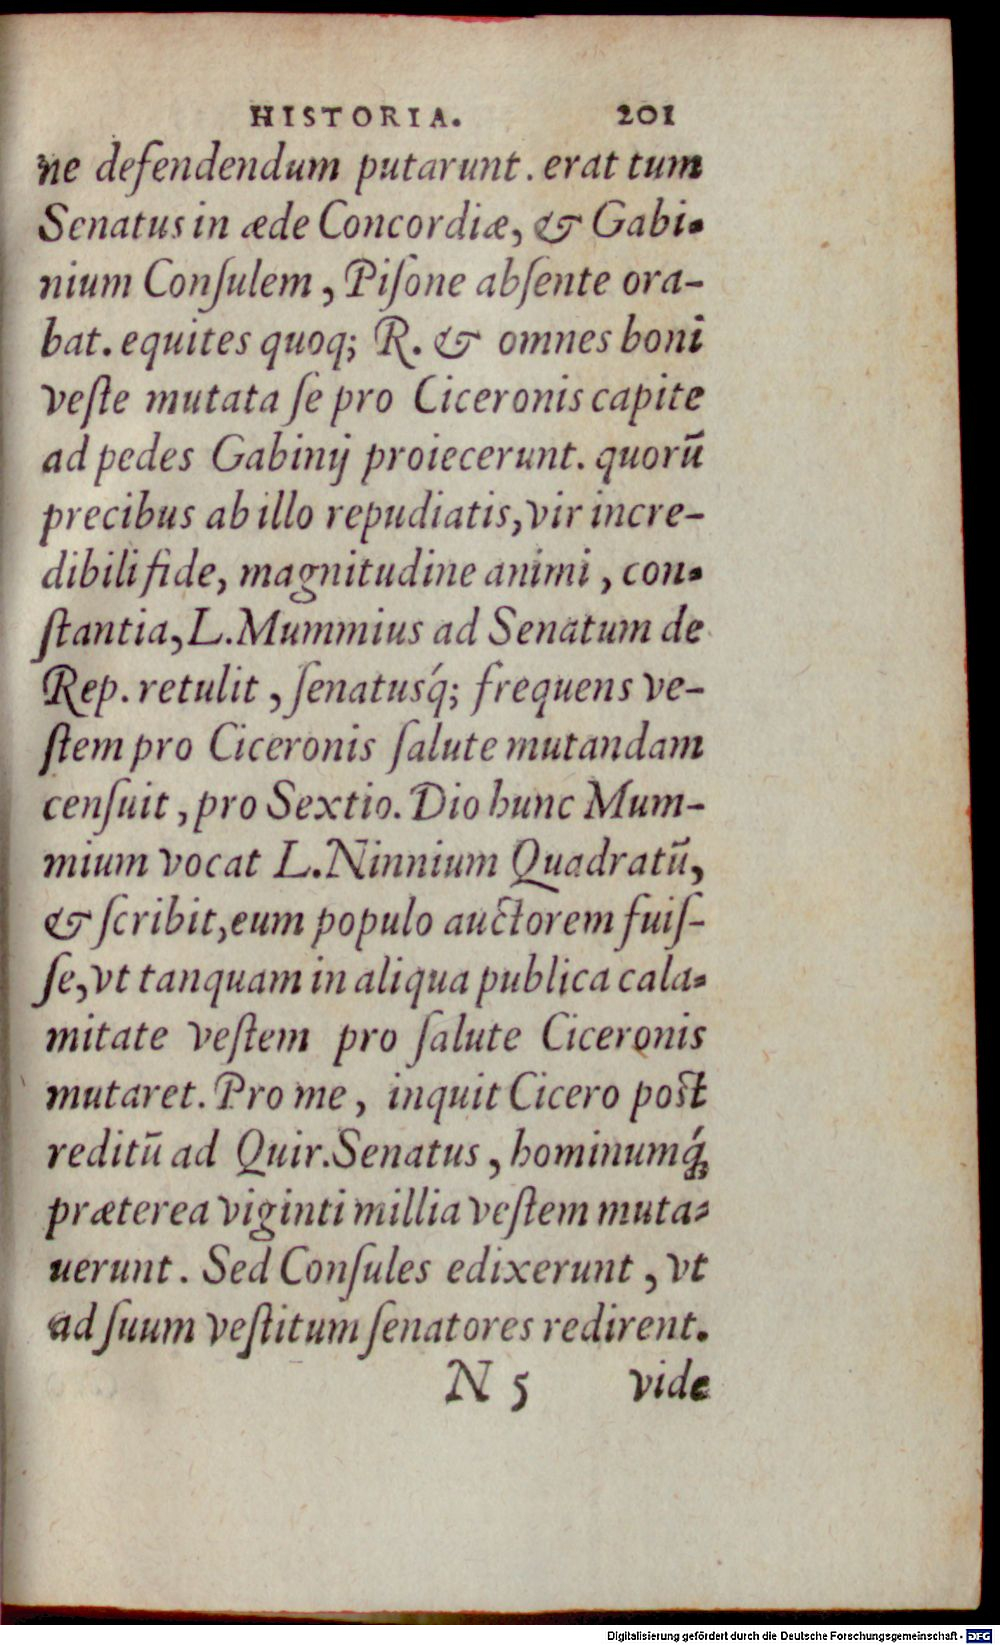 HISTORIA. 201
ne defendendum putarunt. erat tum
Senatus in æde Concordiæ, & Gabi-
nium Conſulem, Piſone abſente ora-
bat. equites quoq; R. & omnes boni
veſte mutata ſe pro Ciceronis capite
ad pedes Gabinij proiecerunt. quorū
precibus ab illo repudiatis, vir incre-
dibili fide, magnitudine animi, con-
ſtantia, L. Mummius ad Senatum de
Rep. retulit, ſenatusq́; frequens ve-
ſtem pro Ciceronis ſalute mutandam
cenſuit, pro Sextio. Dio hunc Mum-
mium vocat L. Ninnium Quadratū,
& ſcribit, eum populo auctorem fuiſ-
ſe, vt tanquam in aliqua publica cala-
mitate veſtem pro ſalute Ciceronis
mutaret. Pro me, inquit Cicero poſt
reditū ad Quir. Senatus, hominumq́;
præterea viginti millia veſtem muta-
uerunt. Sed Conſules edixerunt, vt
ad ſuum veſtitum ſenatores redirent.
N 5 vide
Digitalisierung gefördert durch die Deutsche Forschungsgemeinschaft - DFG